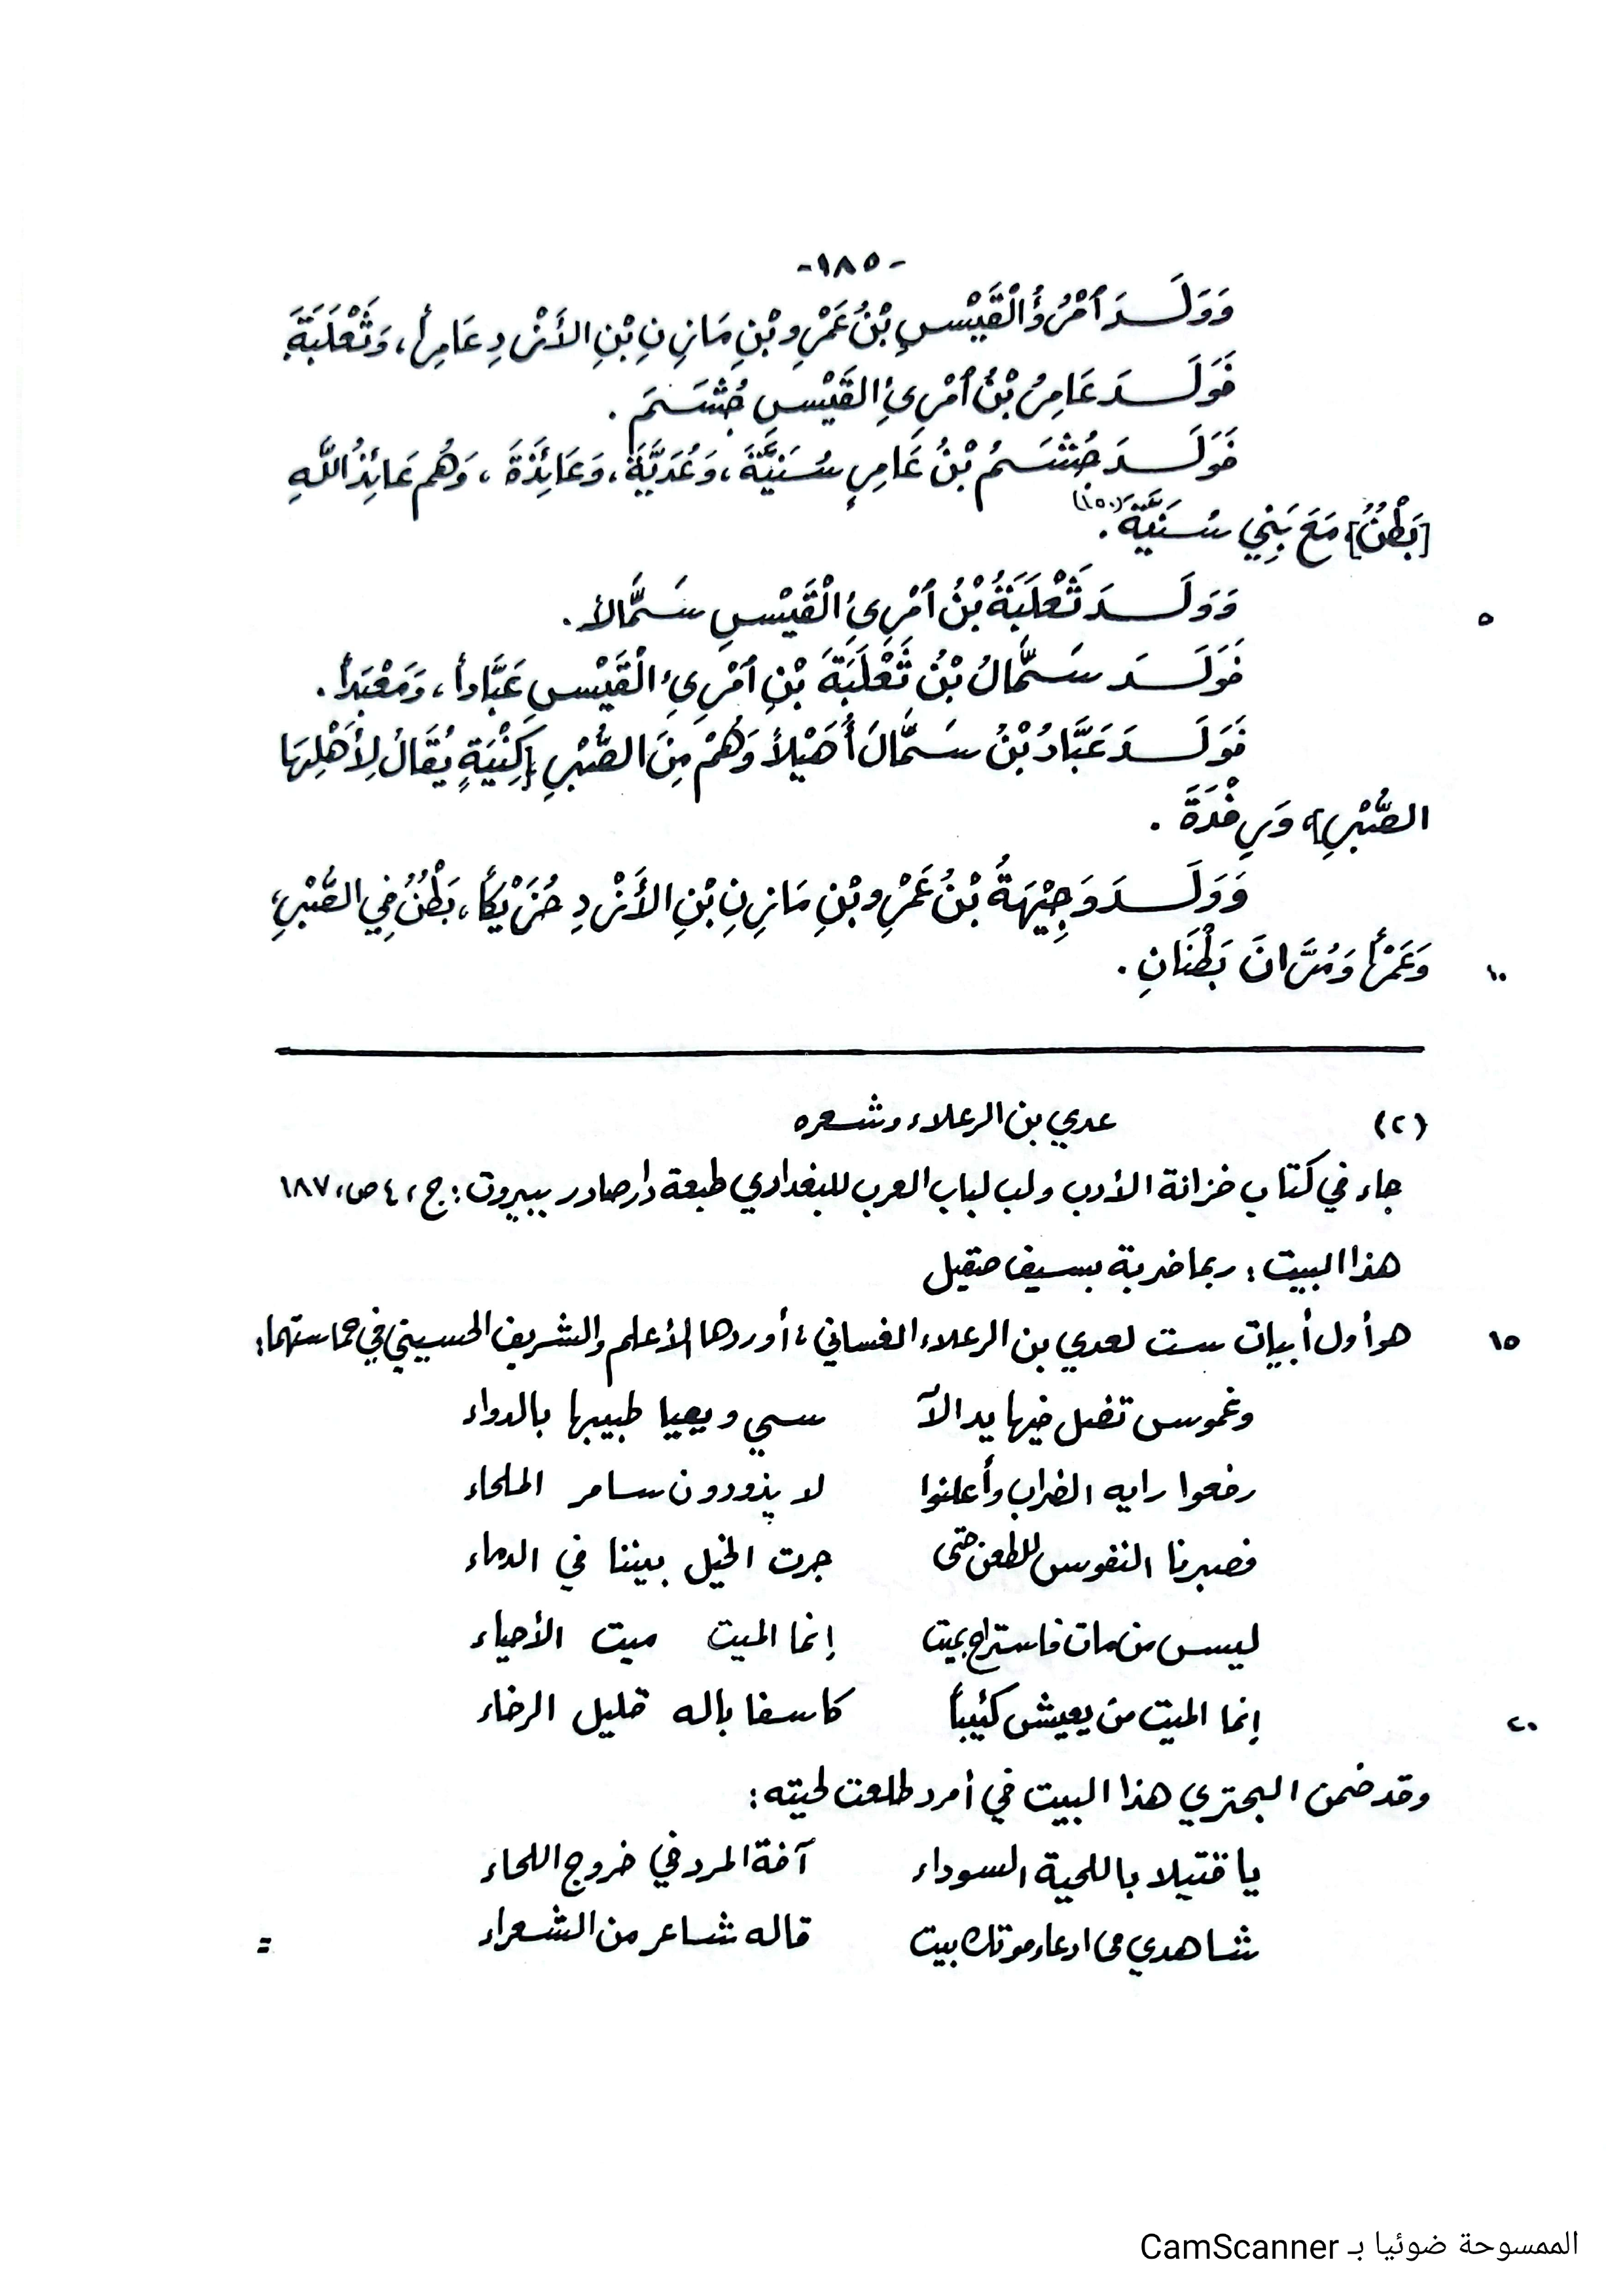 -١٨٥-
وَوَلَــدَ ٱمْرُؤُ الْقَيْسِ بْنُ عَمْرِو بْنِ مَازِنِ بْنِ الأَزْدِ عَامِراً، وَثَعْلَبَةَ
فَوَلَــدَ عَامِرُ بْنُ ٱمْرِئِ القَيْسِ جُشَــمَ .
فَوَلَــدَ جُشَــمُ بْنُ عَامِرٍ سُنَيَّةَ، وَعُدَيَّةَ، وَعَائِذَةَ ، وَهُم عَائِذُ اللَّهِ
[بَطْنٌ] مَعَ بَنِي سُنَيَّةَ (١٥٠).
٥ وَوَلَــدَ ثَعْلَبَةُ بْنُ ٱمْرِئِ الْقَيْسِ سَمَّالاً .
فَوَلَــدَ سَمَّالُ بْنُ ثَعْلَبَةَ بْنِ ٱمْرِئِ الْقَيْسِ عَبَّاداً ، وَمَعْبَداً .
فَوَلَــدَ عَبَّادُ بْنُ سَمَّالَ أُهَيْلاً وَهُمْ مِنَ الصُّبْرِ [كِنْيَةٍ يُقَالُ لِأَهْلِهَا
الصُّبْرِ] وَرِفْدَةَ .
وَوَلَــدَ وَجِيْهَةُ بْنُ عَمْرِو بْنِ مَازِنِ بْنِ الأَزْدِ حُزَيْكاً، بَطْنٌ فِي الصُّبْرِ،
١٠ وَعَمْراً وَمُرَّانَ بَطْنَانِ .
(٢) عدي بن الرعلاء وشعره
جاء في كتاب خزانة الأدب ولب لباب العرب للبغدادي طبعة دار صادر ببيروت : ج ، ٤ ص، ١٨٧
هذا البيت : ربما ضربة بسيف صقيل
١٥ هو أول أبيات ست لعدي بن الرعلاء الغساني ، أوردها الأعلم والشريف الحسيني في حماستهما :
وغموس تضل فيها يد الآ سي ويعيا طبيبها بالدواء
رفعوا رايه الضراب وأعلنوا لا يذودون سامر الملحاء
فصبرنا النفوس للطعن حتى جرت الخيل بيننا في الدماء
ليس من مات فاستراح بميت إنما الميت ميت الأحياء
٢٠ إنما الميت من يعيش كئيباً كاسفا باله قليل الرخاء
وقد ضمن البحتري هذا البيت في أمرد طلعت لحيته :
يا قتيلا باللحية السوداء آفة المرد في خروج اللحاء
شاهدي ادعاء موتك بيت قاله شاعر من الشعراء =
الممسوحة ضوئيا بـ CamScanner